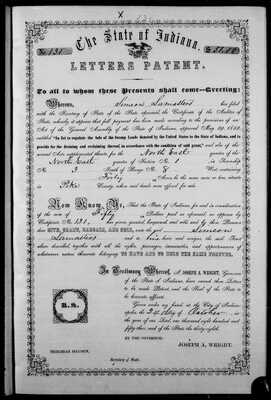 X
No. 131.
The State of Indiana.
LETTERS PATENT.
To all to whom these Presents shall come—Greeting:
Whereas, Simeon has filed
with the Secretary of State of the State aforesaid, the Certificate of the Auditor of
State, whereby it appears that full payment has been made according to the provisions of an
Act of the General Assembly of the State of Indiana, approved May 29, 1852,
entitled "An Act to regulate the Sale of the Swamp Lands donated by the United States to the State of Indiana, and to
provide for the draining and reclaiming thereof, in accordance with the condition of said grant," and also of the
several Acts supplemental thereto, for the North East quarter of the
North East quarter of Section No. 1 in Township
No. 3 of Range No. 8 West containing
Forty Acres be the same more or less, situate
in Pike County, when such lands were offered for sale.
Now Know Ye, That the State of Indiana, for and in consideration
of the sum of Fifty Dollars paid as aforesaid, as appears by
Certificate No. 131, has given, granted, bargained and sold, and by these Presents
does GIVE, GRANT, BARGAIN, AND SELL, unto the said Simeon
and to his heirs and assigns, the said Tract
above described, together with all the rights, privileges, immunities, and appurtenances of
whatsoever nature thereunto belonging, TO HAVE AND TO HOLD THE SAME FOREVER.
In Testimony Whereof, I, JOSEPH A. WRIGHT, Governor
of the State of Indiana, have caused these Letters to
be made Patent, and the Seal of the State to
be hereunto affixed.
Given under my hand, at the City of Indian-
apolis, the 24 day of October in
the year of our Lord, one thousand eight hundred and
fifty-three and of the State the thirty-eighth.
L.S.
BY THE GOVERNOR:
JOSEPH A. WRIGHT.
NEHEMIAH HAYDEN,
Secretary of State.